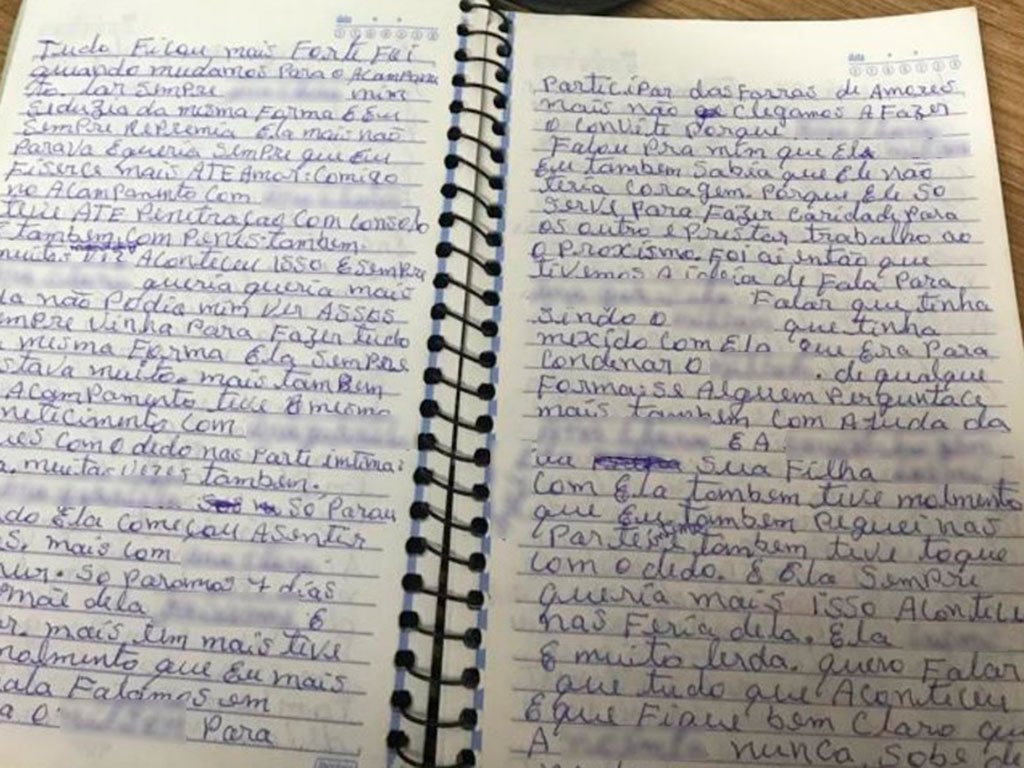 Tudo Ficou mais Forte Foi
quando mudamos Para o Acampame
to. lar sempre mim
siduzia da mesma Forma E Eu
sempre Repremia Ela mais não
Parava Equeria sempre que Eu
Fiserce mais ATE Amor: Comigo
no Acampaninto Com
tive ATE Penitraçao Com Consolo
tambem Com Penis. tambem.
Aconteceu isso E sempre
queria queria mais
la não Podia mim ver ASSES
empre vinha Para Fazer tudo
mesma Forma Ela sempre
stava muito. mais tambem
Acampamento tive o mesmo
neticimento Com
es Com o dedo nas Parti intima:
a. muitas vezes tambem.
só Parau
do Ela começou Asentir
s. mais com
só Paramos 7 dias
mãe dela E
r. mais Em mais tive
molmento que Eu mais
Falamos em
o Para
Participar das Farras de Amores
mais não Clegamos A Fazer
o Convite Porque
Falou Pra mim que Ela
Eu tambem sabia que Ele não
tiria coragem. Porque Ele so
serve Para Fazer Caridade Para
os outro e Prestar trabalho ao
o Proxismo. Foi ai então que
tivemos A ideia de Fala Para
Falar que tinha
sindo o que tinha
mexido com Ela que Era Para
Condenar o . de qualque
Forma: se Alguem Perguntace
mais tambem Com A Juda da
E A
sua Filha
Com Ela tambem tive molmento
que Eu tambem Peguei nas
Partes intima tambem tive toque
Com o dedo. E Ela sempre
queria mais isso Aconticeu
nas Feria dela. Ela
E muito lerda. quero Falar
que tudo que Aconticeu
E que Fique bem Claro qu
A nunca sobe de